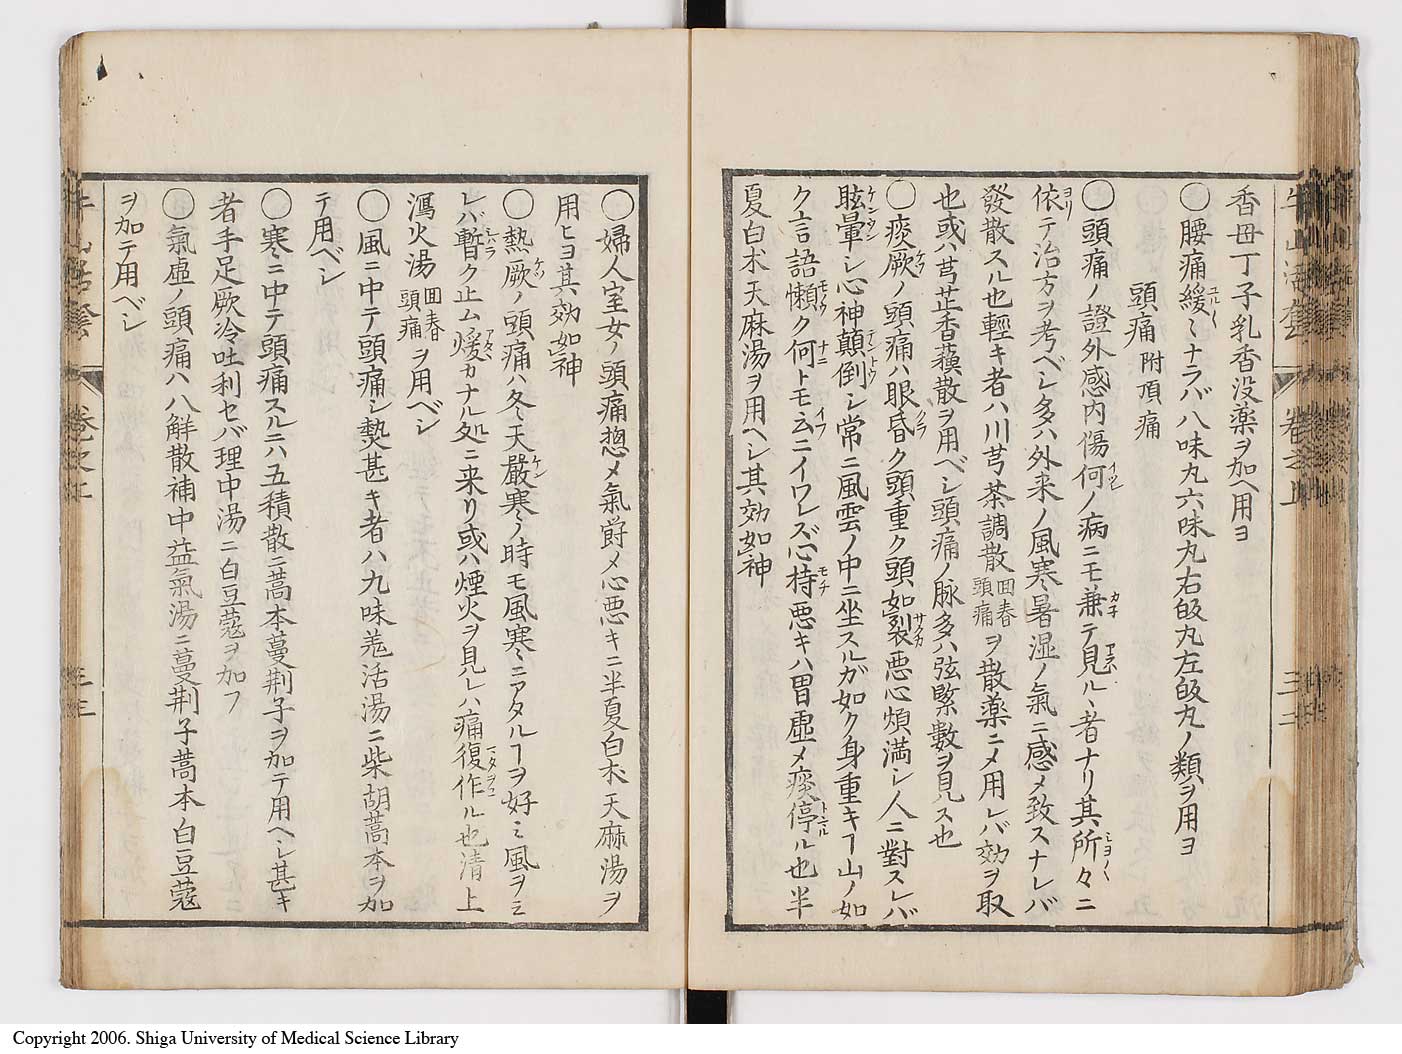 香毋丁子乳香没藥ヲ加ヘ用ヨ
〇腰痛緩〻ナラバ八味丸六味丸右皈丸左皈丸ノ類ヲ用ヨ
頭痛 附頂痛
〇頭痛ノ證外感内傷何ノ病ニモ兼テ見ル〻者ナリ其所々ニ
依テ治方ヲ考ベシ多ハ外来ノ風寒暑湿ノ氣ニ感メ致スナレバ
發散スル也輕キ者ハ川芎茶調散回春頭痛ヲ散薬ニメ用レバ効ヲ取
也或ハ芎芷香蘓散ヲ用ベシ頭痛ノ脉多ハ弦緊數ヲ見ス也
〇痰厥ノ頭痛ハ眼昏ク頭重ク頭如裂悪心煩満シ人ニ對スレバ
眩暈シ心神顛倒シ常ニ風雲ノ中ニ坐スルガ如ク身重キヿ山ノ如
ク言語懶ク何トモ云ニイワレズ心持悪キハ胃虚メ痰停ル也半
夏白朮天麻湯ヲ用ヘシ其効如神
〇婦人室女ノ頭痛惣メ氣欝メ心悪キニ半夏白朮天麻湯ヲ
用ヒヨ其効如神
〇熱厥ノ頭痛ハ冬天嚴寒ノ時モ風寒ニアタルヿヲ好ミ風ヲミ
レバ暫ク止ム煖カナル処ニ来リ或ハ煙火ヲ見レハ痛復作ル也清上
瀉火湯回春頭痛ヲ用ベシ
〇風ニ中テ頭痛シ熱甚キ者ハ九味羗活湯ニ柴胡藁本ヲ加
テ用ベシ
〇寒ニ中テ頭痛スルニハ五積散ニ藁本蔓荆子ヲ加テ用ヘシ甚キ
者手足厥冷吐利セバ理中湯ニ白豆蔲ヲ加フ
〇氣虚ノ頭痛ハ八解散補中益氣湯ニ蔓荆子藁本白豆蔲
ヲ加テ用ベシ
Copyright 2006. Shiga University of Medical Science Library